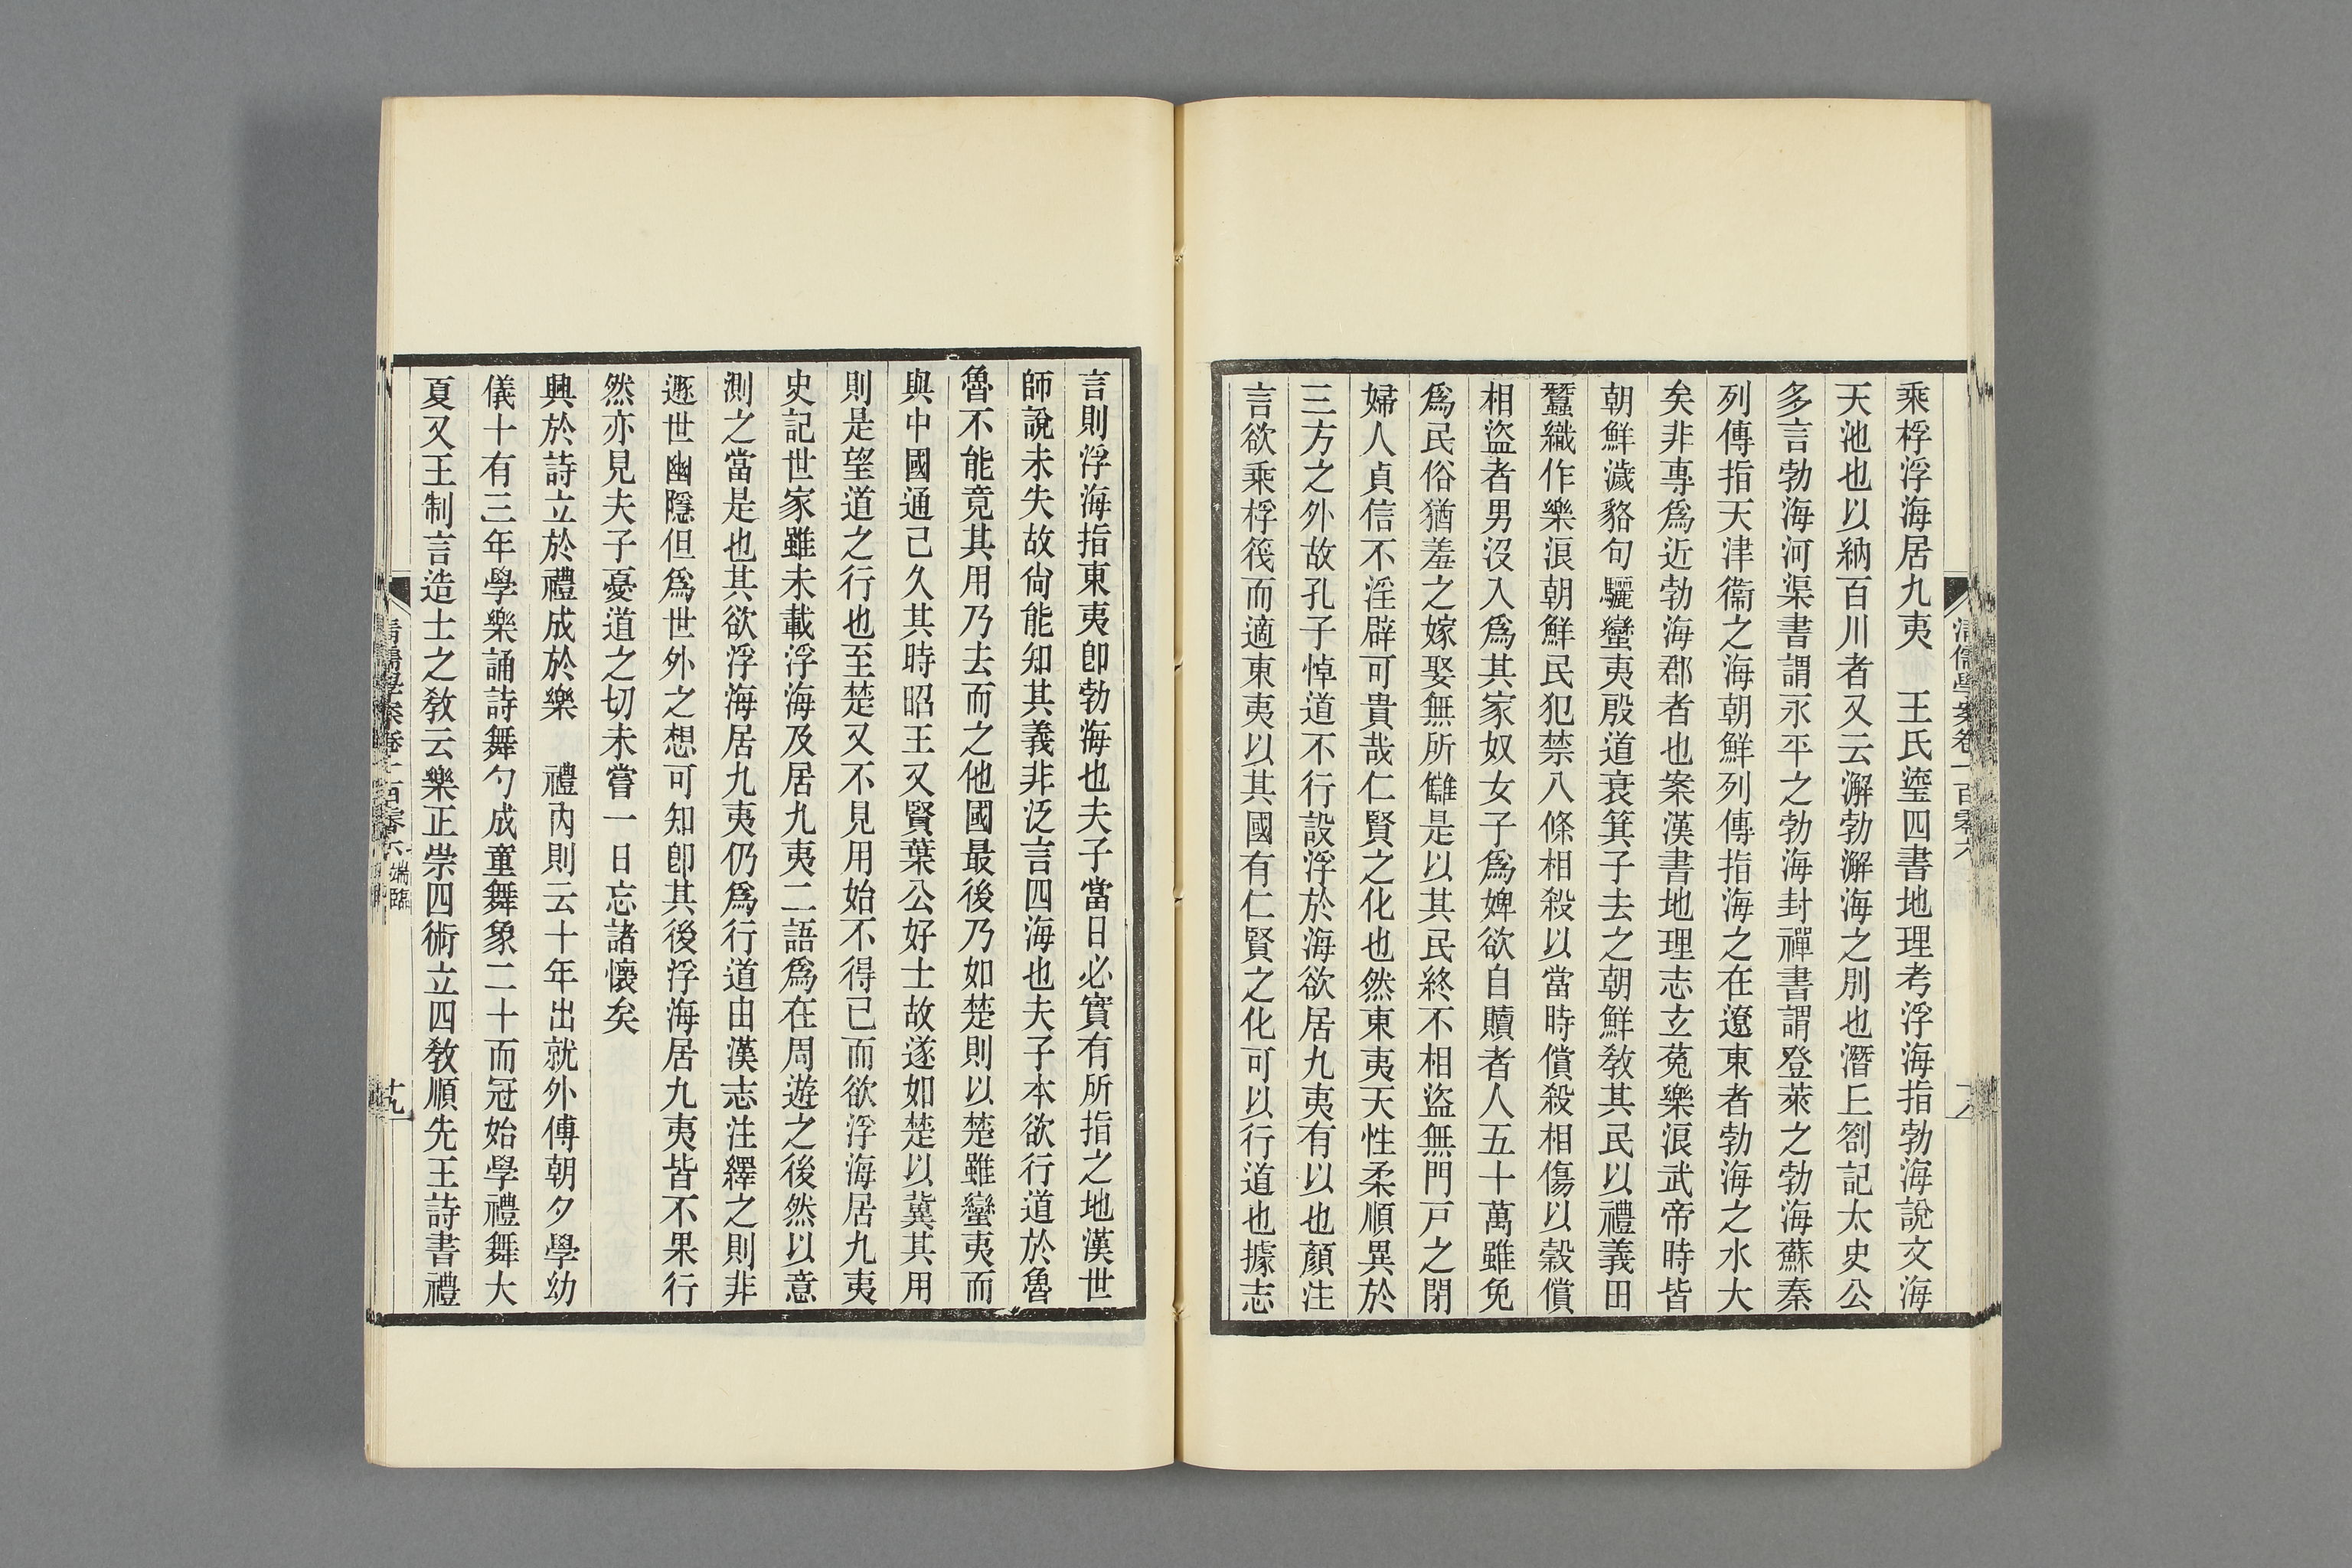 乘桴浮海居九夷　王氏瑬四書地理考浮海指勃海說文海
天池也以納百川者又云澥勃澥海之別也潛丘劄記太史公
多言勃海河渠書謂永平之勃海封禪書謂登萊之勃海蘇秦
列傳指天津衞之海朝鮮列傳指海之在遼東者勃海之水大
矣非專爲近勃海郡者也案漢書地理志玄菟樂浪武帝時皆
朝鮮濊貉句驪蠻夷殷道衰箕子去之朝鮮敎其民以禮義田
蠶織作樂浪朝鮮民犯禁八條相殺以當時償殺相傷以穀償
相盜者男沒入爲其家奴女子爲婢欲自贖者人五十萬雖免
爲民俗猶羞之嫁娶無所讎是以其民終不相盜無門戸之閉
婦人貞信不淫辟可貴哉仁賢之化也然東夷天性柔順異於
三方之外故孔子悼道不行設浮於海欲居九夷有以也顏注
言欲乘桴筏而適東夷以其國有仁賢之化可以行道也據志
清儒學案卷一百零六
十八
言則浮海指東夷卽勃海也夫子當日必實有所指之地漢世
師說未失故尙能知其義非泛言四海也夫子本欲行道於魯
魯不能竟其用乃去而之他國最後乃如楚則以楚雖蠻夷而
與中國通已久其時昭王又賢葉公好士故遂如楚以冀其用
則是望道之行也至楚又不見用始不得已而欲浮海居九夷
史記世家雖未載浮海及居九夷二語爲在周遊之後然以意
測之當是也其欲浮海居九夷仍爲行道由漢志注繹之則非
遯世幽隱但爲世外之想可知卽其後浮海居九夷皆不果行
然亦見夫子憂道之切未嘗一日忘諸懷矣
興於詩立於禮成於樂　禮內則云十年出就外傅朝夕學幼
儀十有三年學樂誦詩舞勺成童舞象二十而冠始學禮舞大
夏又王制言造士之敎云樂正崇四術立四敎順先王詩書禮
清儒學案卷一百零六
端臨
十九